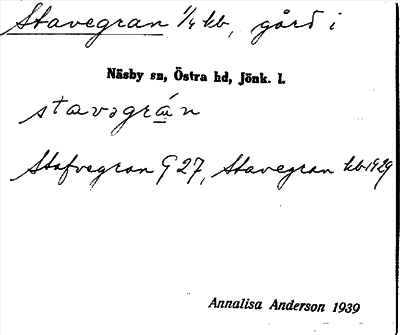 Stavegran 1/4 kb, gård i
Näsby sn, Östra hd, Jönk. l.
stavəgrán
Stafvegran G 27, Stavegran kb 1929
Annalisa Anderson 1939